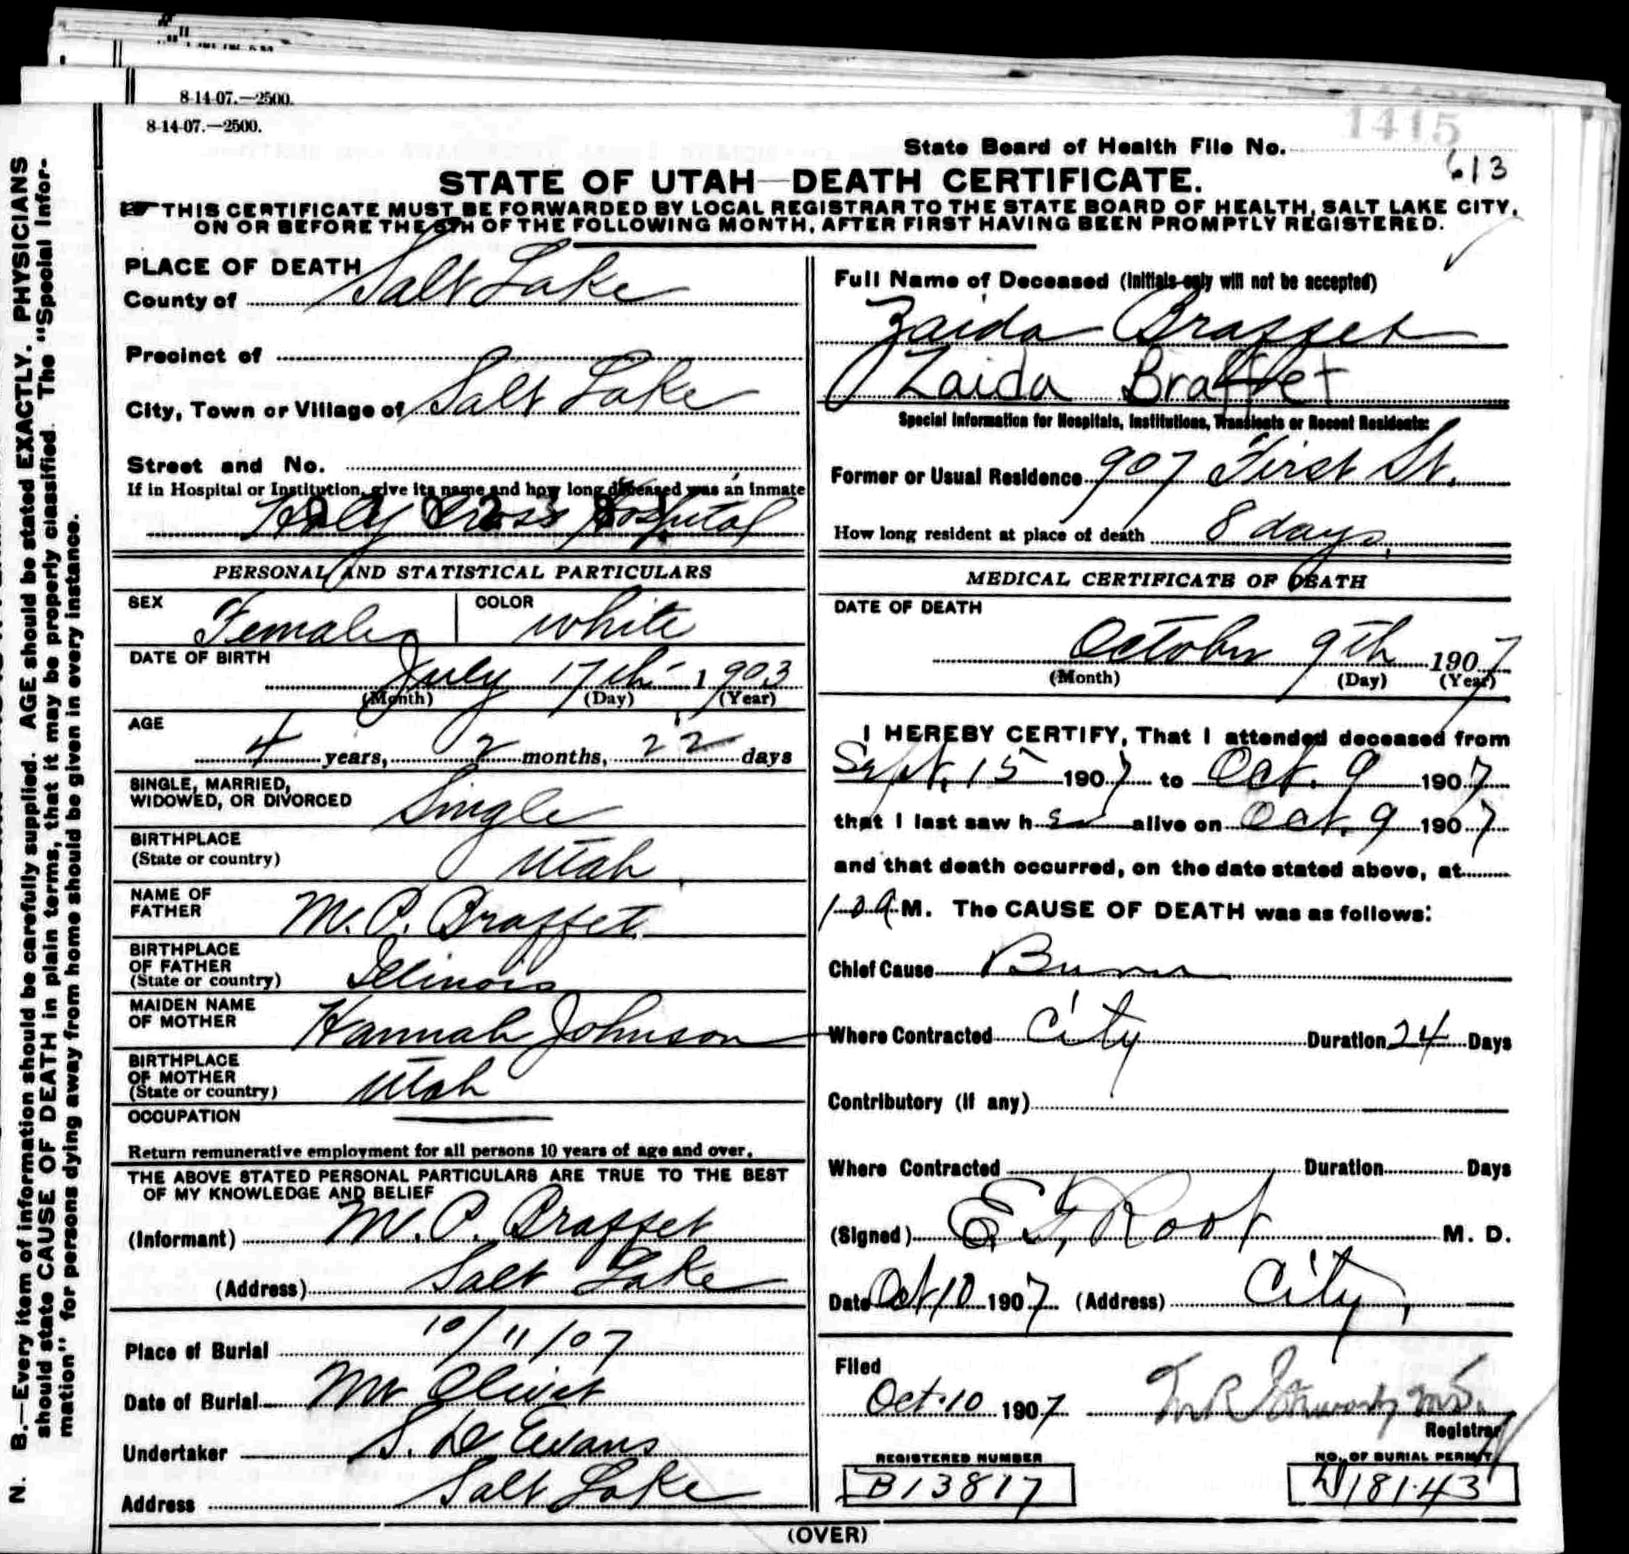 8-14-07.—2500.
8-14-07.—2500.
1415
State Board of Health File No.
613
STATE OF UTAH—DEATH CERTIFICATE.
THIS CERTIFICATE MUST BE FORWARDED BY LOCAL REGISTRAR TO THE STATE BOARD OF HEALTH, SALT LAKE CITY,
ON OR BEFORE THE 5TH OF THE FOLLOWING MONTH, AFTER FIRST HAVING BEEN PROMPTLY REGISTERED.
N. B.—Every item of information should be carefully supplied. AGE should be stated EXACTLY. PHYSICIANS
should state CAUSE OF DEATH in plain terms, that it may be properly classified. The "Special Infor-
mation" for persons dying away from home should be given in every instance.
PLACE OF DEATH
County of Salt Lake
Precinct of
City, Town or Village of Salt Lake
Street and No.
If in Hospital or Institution, give its name and how long deceased was an inmate
Holy Cross Hospital
PERSONAL AND STATISTICAL PARTICULARS
SEX Female COLOR White
DATE OF BIRTH
July 17th 1903
(Month) (Day) (Year)
AGE
4 years, 2 months, 22 days
SINGLE, MARRIED,
WIDOWED, OR DIVORCED Single
BIRTHPLACE
(State or country) Utah
NAME OF
FATHER M. P. Braffet
BIRTHPLACE
OF FATHER
(State or country) Illinois
MAIDEN NAME
OF MOTHER Hannah Johnson
BIRTHPLACE
OF MOTHER
(State or country) Utah
OCCUPATION
Return remunerative employment for all persons 10 years of age and over.
THE ABOVE STATED PERSONAL PARTICULARS ARE TRUE TO THE BEST
OF MY KNOWLEDGE AND BELIEF
(Informant) M. P. Braffet
(Address) Salt Lake
Place of Burial 10/11/07
Date of Burial Mt Olivet
Undertaker S. D Evans
Address Salt Lake
Full Name of Deceased (Initials only will not be accepted)
Zaida Braffet
Zaida Braffet
Special Information for Hospitals, Institutions, Transients or Recent Residents:
Former or Usual Residence 907 First St.
How long resident at place of death 8 days.
MEDICAL CERTIFICATE OF DEATH
DATE OF DEATH
October 9th 1907
(Month) (Day) (Year)
I HEREBY CERTIFY, That I attended deceased from
Sept. 15 1907 to Oct. 9 1907
that I last saw h er alive on Oct. 9 1907
and that death occurred, on the date stated above, at
M. The CAUSE OF DEATH was as follows:
Chief Cause Burn
Where Contracted City Duration 24 Days
Contributory (if any)
Where Contracted Duration Days
(Signed) E. F. Root M. D.
Date Oct 10 1907 (Address) City,
Filed
Oct. 10 1907
Registrar
REGISTERED NUMBER
B13817
NO. OF BURIAL PERMIT
18143
(OVER)